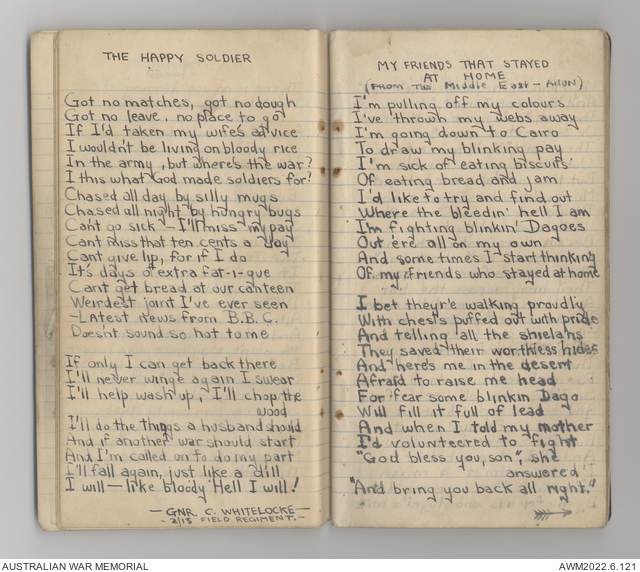 THE HAPPY SOLDIER
Got no matches, got no dough
Got no leave, no place to go
If I'd taken my wife's advice
I wouldn't be living on bloody rice
In the army, but where's the war?
I this what God made soldiers for?
Chased all day by silly mugs
Chased all night by hungry bugs
Can't go sick - I'll miss my pay
Can't miss that ten cents a day
Can't give lip, for if I do
It's days of extra fat-i-gue
Can't get bread at our canteen
Weirdest joint I've ever seen
-Latest news from B.B.C.
Doesn't sound so hot to me
If only I can get back there
I'll never winge again I swear
I'll help wash up, I'll chop the
wood
I'll do the things a husband should
And if another war should start
And I'm called on to do my part
I'll fall again, just like a dill
I will — like bloody Hell I will!
— GNR. C. WHITELOCKE —
- 2/15 FIELD REGIMENT. -
MY FRIENDS THAT STAYED
AT HOME
(FROM THE Middle East - ANON)
I'm pulling off my colours
I've thrown my webs away
I'm going down to Cairo
To draw my blinking pay
I'm sick of eating biscuits
Of eating bread and jam
I'd like to try and find out
Where the bleedin' hell I am
I'm fighting blinkin' Dagoes
Out 'ere all on my own
And some times I start thinking
Of my friends who stayed at home
I bet theyr'e walking proudly
With chests puffed out with pride
And telling all the shielahs
They saved their worthless hides
And here's me in the desert
Afraid to raise me head
For fear some blinkin Dago
Will fill it full of lead
And when I told my mother
I'd volunteered to fight
"God bless you, son", she
answered
"And bring you back all right."
AUSTRALIAN WAR MEMORIAL
AWM2022.6.121